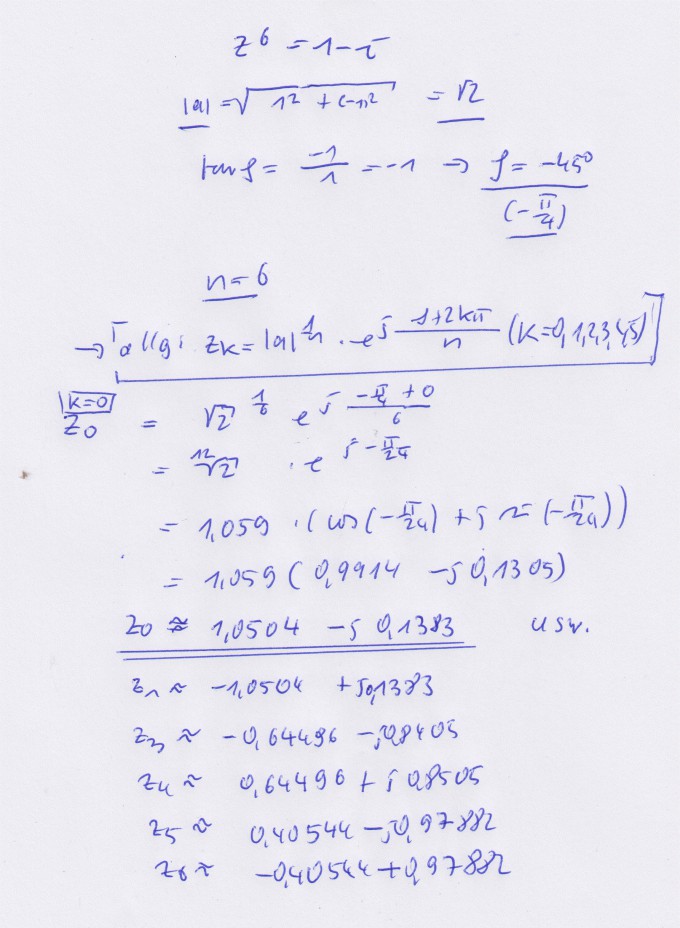 z⁶ = 1 - i
|a| = √(1² + (-1)²) = √2
tan φ = -1/1 = -1 → φ = -45°
(-π/4)
n = 6
→ [allg: z_K = |a|^(1/n) · e^(j (φ+2kπ)/n) (K=0,1,2,3,4,5)]
k=0
z₀ = √2^(1/6) e^(j (-π/4 + 0)/6)
= ¹²√2 · e^(j -π/24)
= 1,059 · (cos(-π/24) + j sin(-π/24))
= 1,059 (0,9914 - j 0,1305)
z₀ ≈ 1,0504 - j 0,1383 usw.
z₁ ≈ -1,0504 + j0,1383
z₃ ≈ -0,64496 - j0,8405
z₄ ≈ 0,64496 + j 0,8505
z₅ ≈ 0,40544 - j0,97882
z₆ ≈ -0,40544 + 0,97882